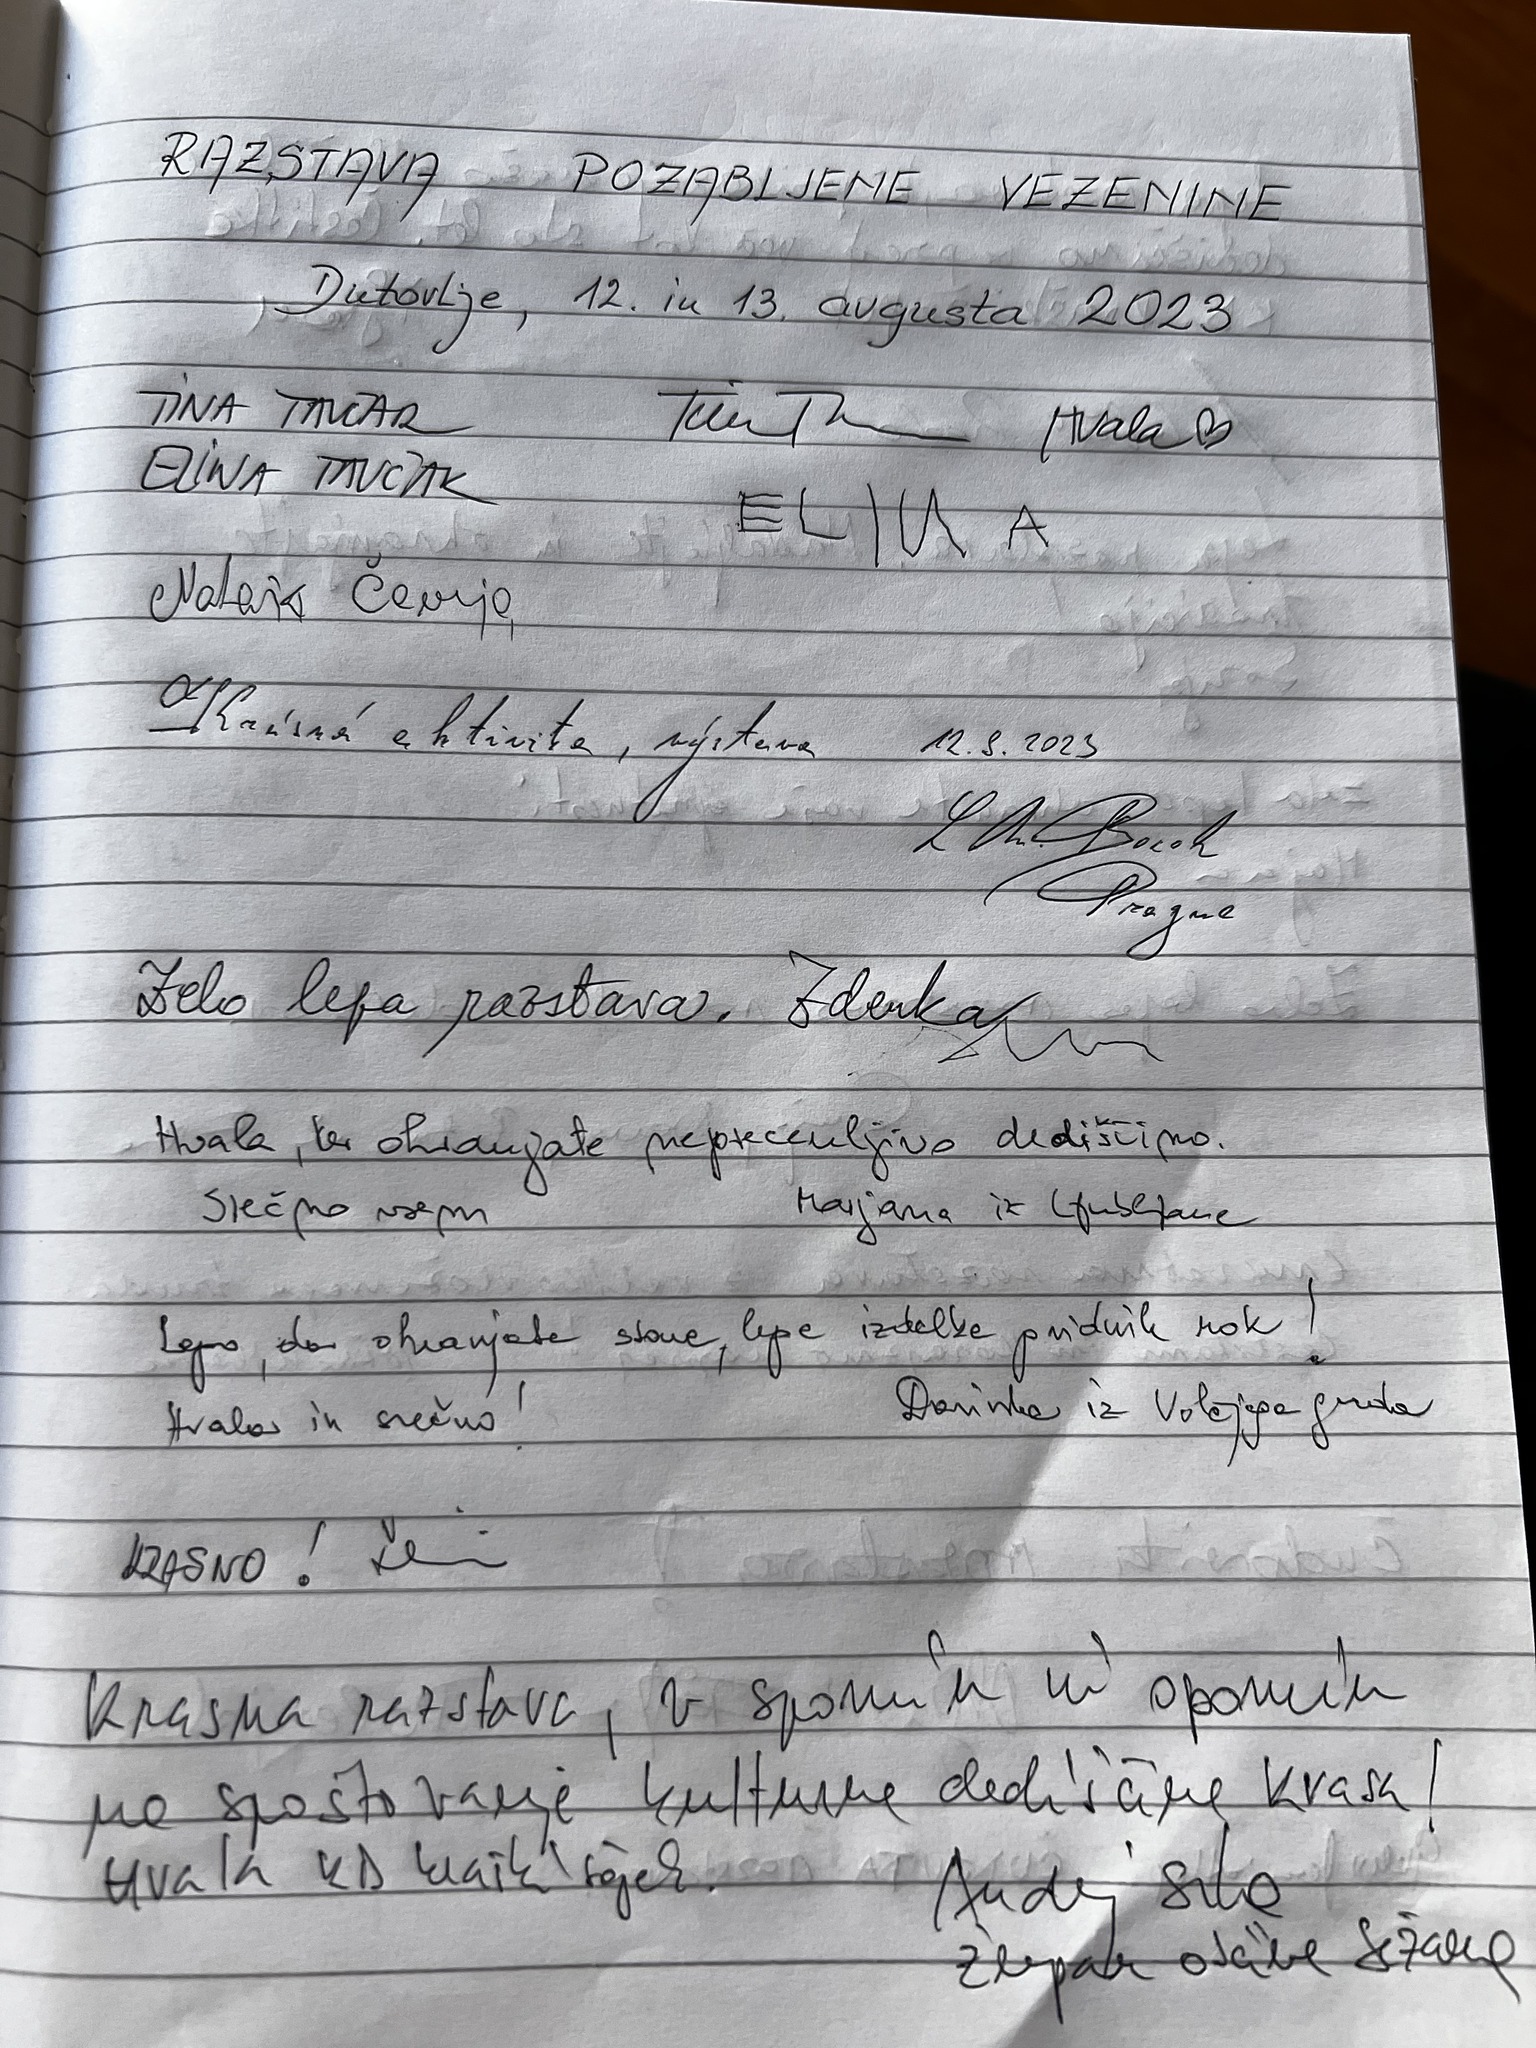 RAZSTAVA POZABLJENE VEZENINE
Dutovlje, 12. in 13. avgusta 2023
TINA TAVČAR Hvala
ELINA TAVČAR
ELINA
Nataša
Krásná aktivita, výstava 12.8.2023
Prague
Zelo lepa razstava. Zdenka
Hvala, ker ohranjate neprecenljivo dediščino.
Srečno vsem Marjana iz Ljubljane
Lepo, da ohranjate stare, lepe izdelke pridnih rok!
Hvala in srečno! Darinka iz Volčjega grada
KRASNO!
Krasna razstava, v spomin in opomin
na spoštovanje kulturne dediščine Krasa!
Hvala KD
Andrej Sila
Župan občine Sežana